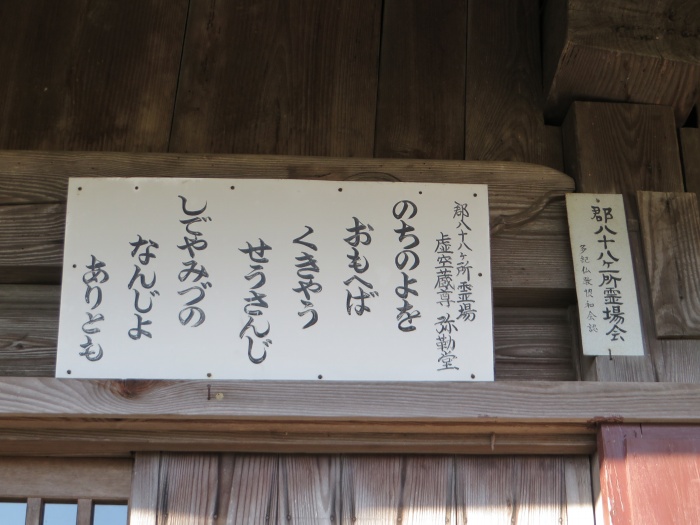 郡八十八ヶ所霊場
虚空蔵尊 弥勒堂
のちのよを
おもへば
くきやう
せうさんじ
しでやみづの
なんじよ
ありとも
郡八十八ヶ所霊場会
多紀仏教